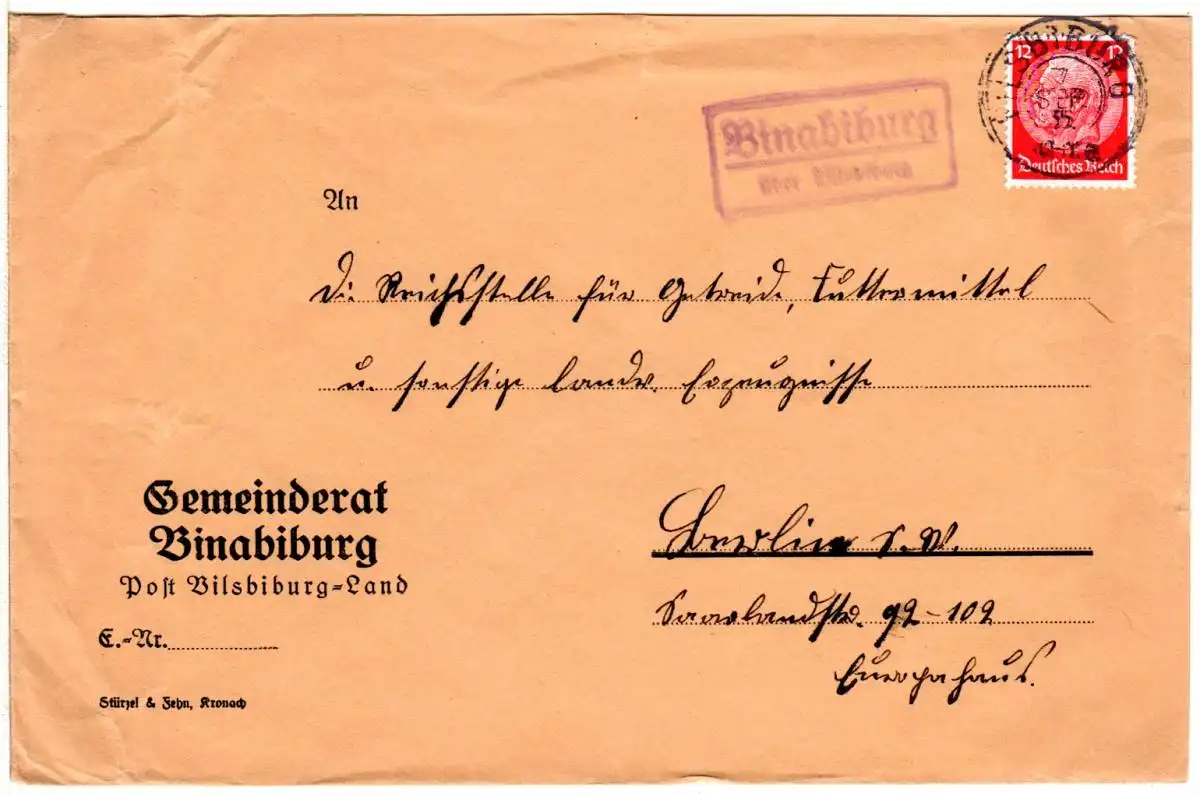 12 12
VILSBIBURG
7
SEP
Deutsches Reich
Binabiburg
über Vilsbiburg
An
Die Reichsstelle für Getreide, Futtermittel
u. sonstige landw. Erzeugnisse
Gemeinderat
Binabiburg
Post Vilsbiburg-Land
E.-Nr.
Stürzel & Zehn, Kronach
Berlin S.W.
Saarlandstr. 92-102
Europahaus.